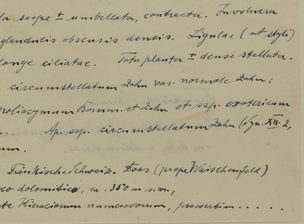 la saepe ± umbellata, contracta. Involucra
glandulis obscuris densis. Ligulae (et styli)
longe ciliatae. Tota planta ± dense stellata.
circumstellatum Zahn var. normale Zahn;
Bornm. et Zahn et ssp. exotericum
Ap. ssp. circumstellatum Zahn (Syn. XII. 2,
Fränkische Schweiz. Doos (prope Waischenfeld)
dolomitico, ca. 350 m s.m.,
Hieraciorum numerosorum, praesertim . . . . . .